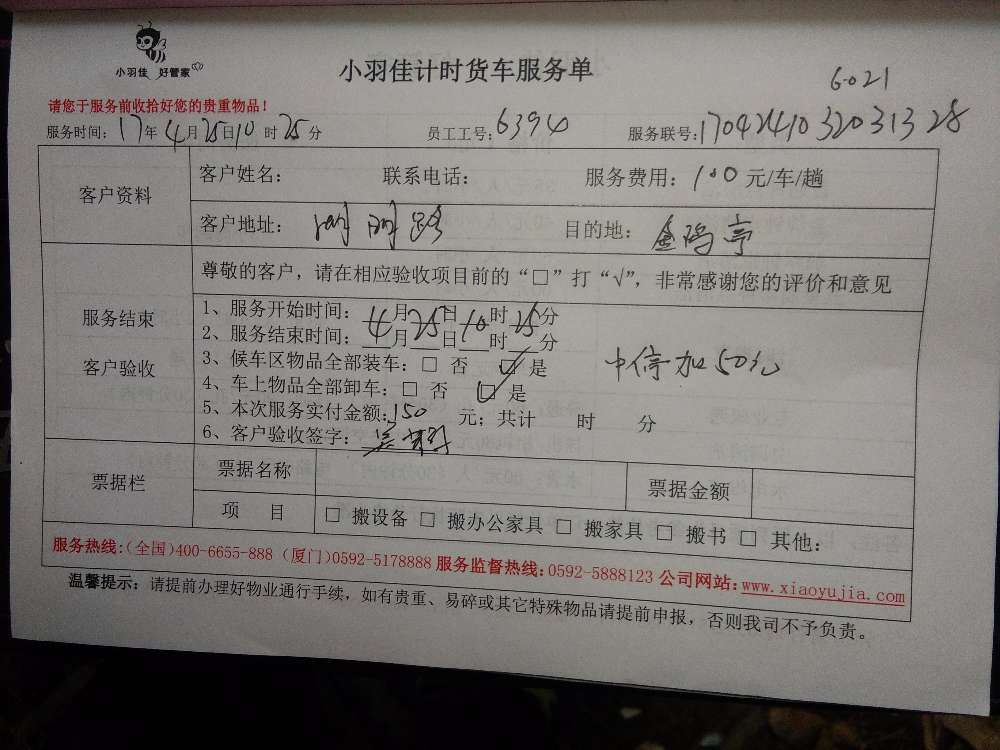 小羽佳 好管家
小羽佳计时货车服务单
6021
请您于服务前收拾好您的贵重物品！
服务时间：17年4月25日10时25分 员工工号：6394 服务联号：17042410320313 28
客户资料
客户姓名： 联系电话： 服务费用：100元/车/趟
客户地址： 目的地：金鸡亭
服务结束
客户验收
尊敬的客户，请在相应验收项目前的“□”打“√”，非常感谢您的评价和意见
1、服务开始时间：4月25日10时25分
2、服务结束时间：__月__日__时__分
3、候车区物品全部装车：□ 否 ☑ 是
中停加50元
4、车上物品全部卸车：□ 否 ☑ 是
5、本次服务实付金额：150 元；共计 时 分
6、客户验收签字：
票据栏
票据名称 票据金额
项 目 □ 搬设备 □ 搬办公家具 □ 搬家具 □ 搬书 □ 其他：
服务热线：(全国)400-6655-888（厦门)0592-5178888 服务监督热线：0592-5888123 公司网站：www.xiaoyujia.com
温馨提示：请提前办理好物业通行手续，如有贵重、易碎或其它特殊物品请提前申报，否则我司不予负责。